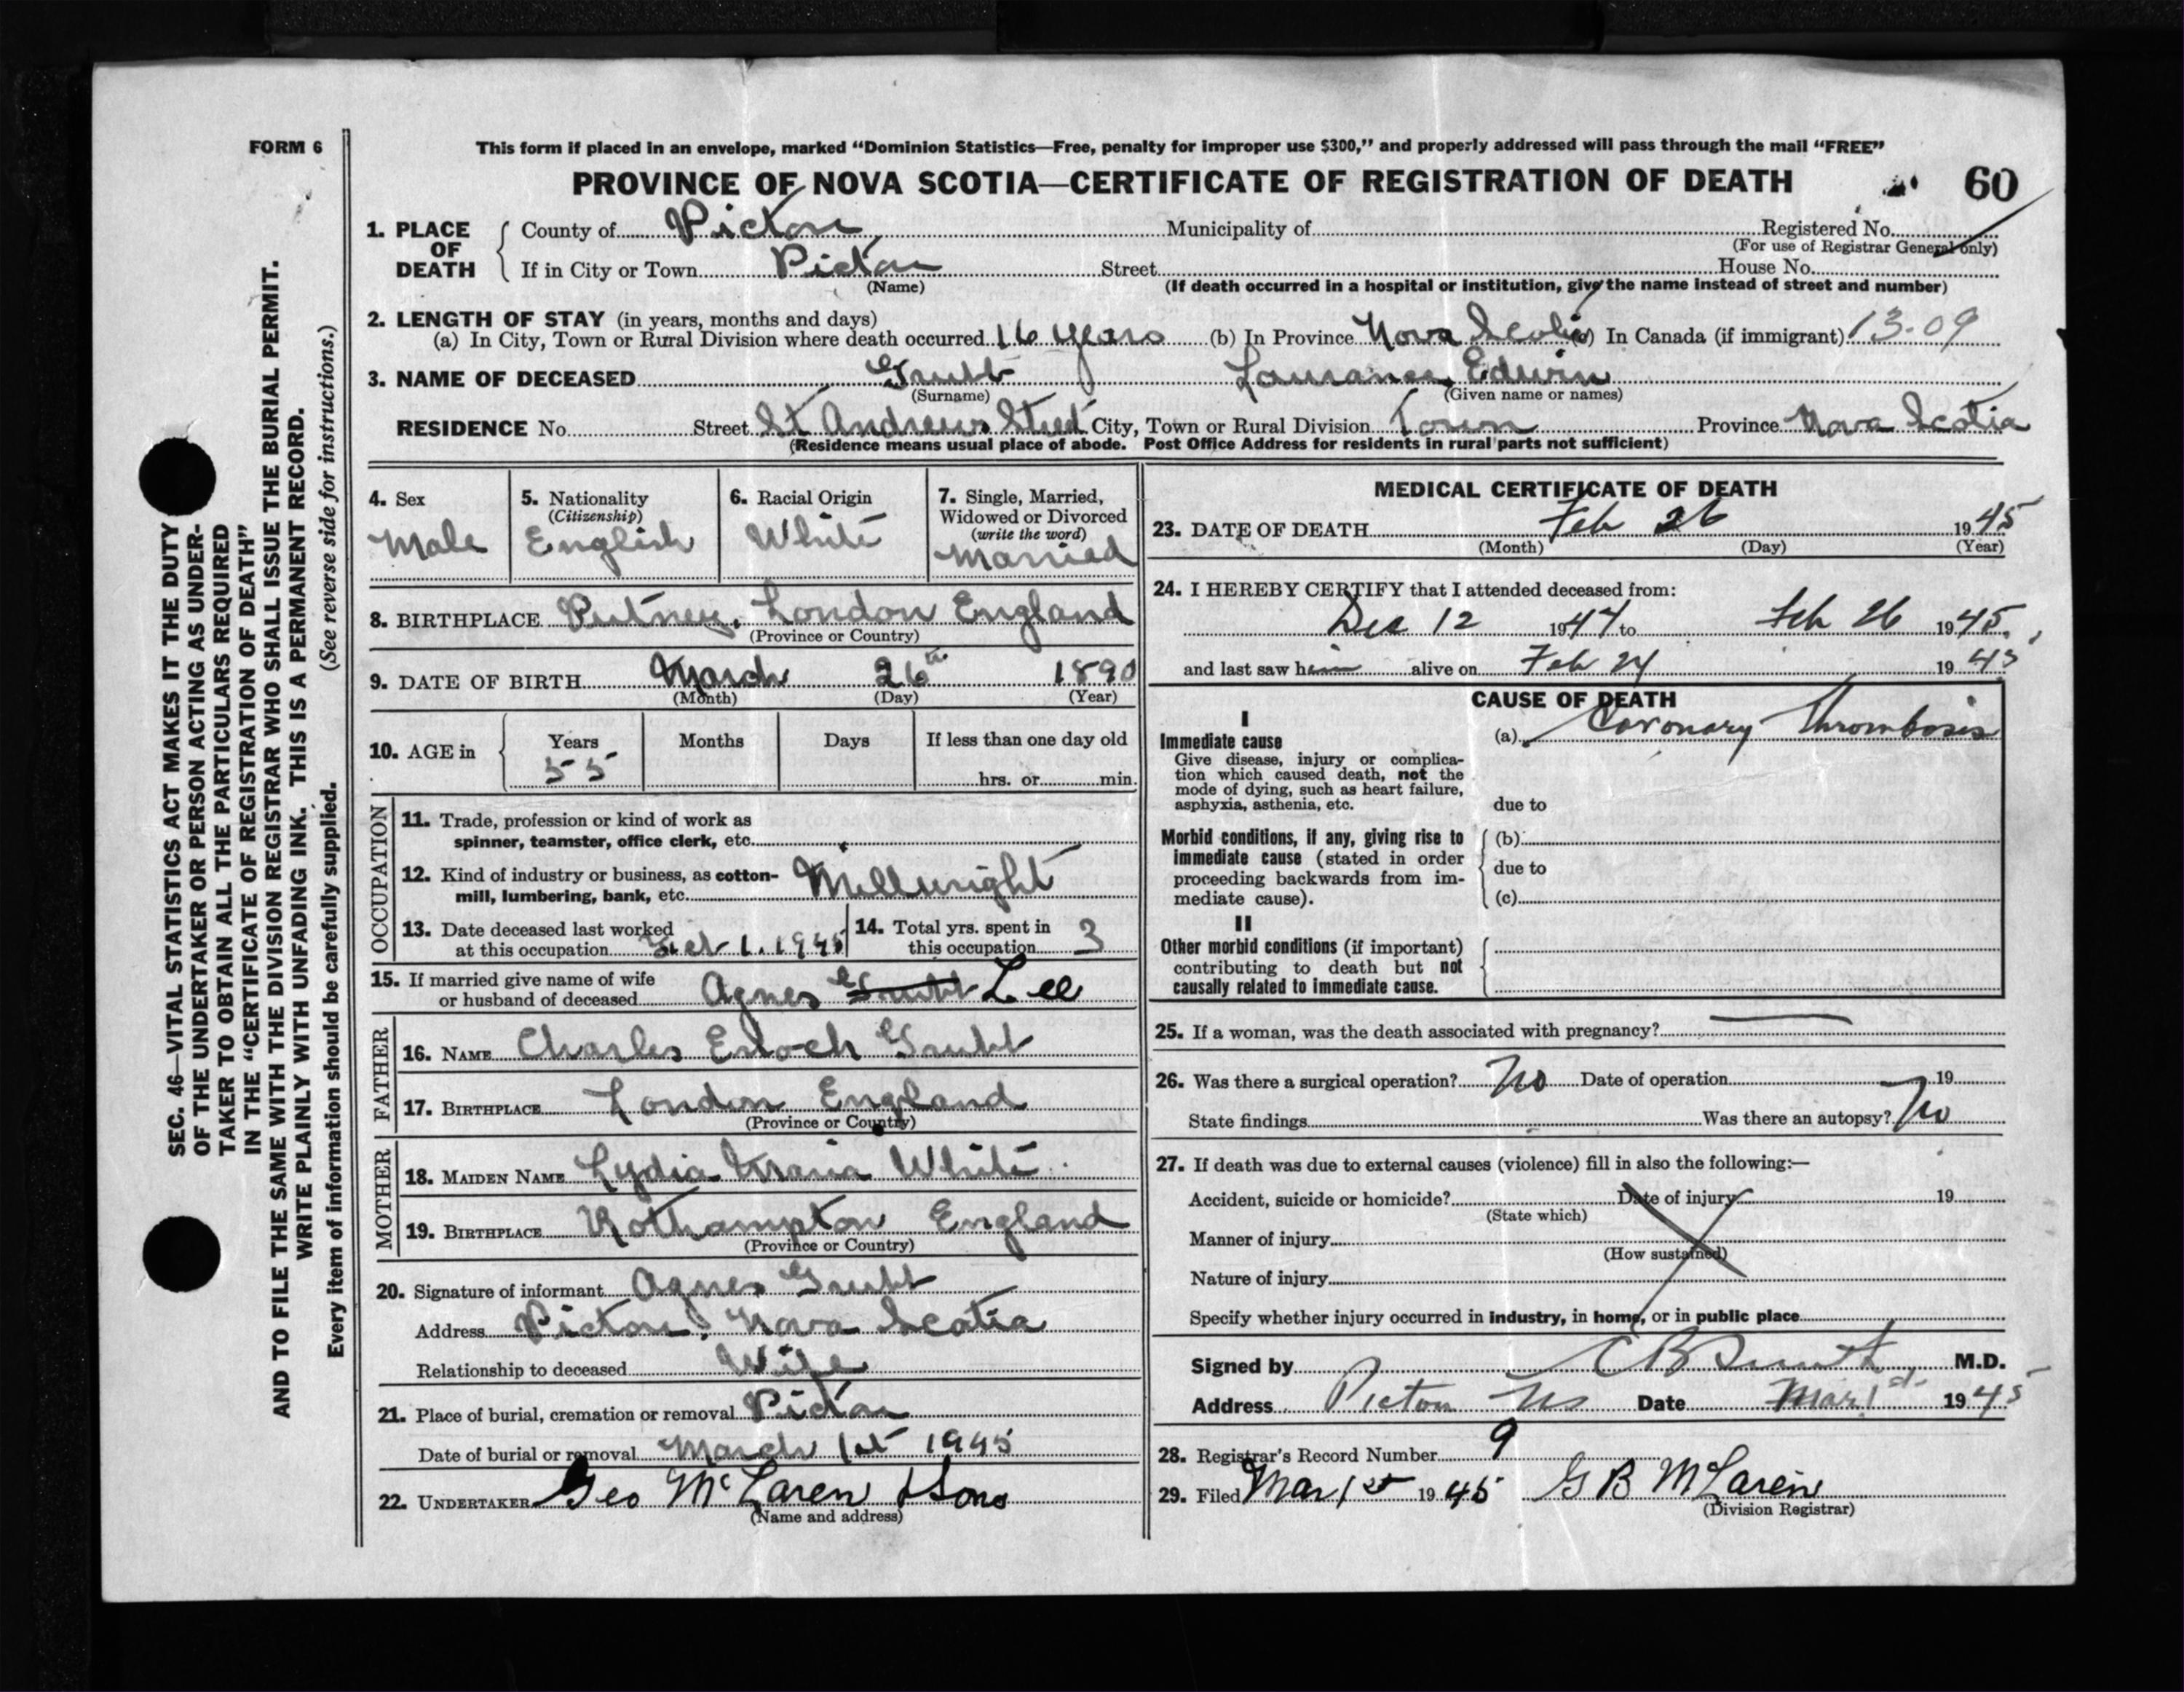 FORM 6
This form if placed in an envelope, marked “Dominion Statistics—Free, penalty for improper use $300,” and properly addressed will pass through the mail “FREE”
PROVINCE OF NOVA SCOTIA—CERTIFICATE OF REGISTRATION OF DEATH 60
1. PLACE OF DEATH County of Pictou Municipality of Registered No.
(For use of Registrar General only)
If in City or Town Pictou Street House No.
(Name) (If death occurred in a hospital or institution, give the name instead of street and number)
2. LENGTH OF STAY (in years, months and days)
(a) In City, Town or Rural Division where death occurred 16 years (b) In Province Nova Scotia (c) In Canada (if immigrant) 13-09
3. NAME OF DECEASED Grubb Laurance Edwin
(Surname) (Given name or names)
RESIDENCE No. Street St Andrews Street City, Town or Rural Division Town Province Nova Scotia
(Residence means usual place of abode. Post Office Address for residents in rural parts not sufficient)
4. Sex Male
5. Nationality (Citizenship) English
6. Racial Origin White
7. Single, Married, Widowed or Divorced (write the word) Married
8. BIRTHPLACE Putney, London England
(Province or Country)
9. DATE OF BIRTH March 26th 1890
(Month) (Day) (Year)
10. AGE in Years 55 Months Days If less than one day old
hrs. or min.
OCCUPATION
11. Trade, profession or kind of work as
spinner, teamster, office clerk, etc.
12. Kind of industry or business, as cotton-
mill, lumbering, bank, etc. Millwright
13. Date deceased last worked
at this occupation 1. 1945
14. Total yrs. spent in
this occupation 3
15. If married give name of wife
or husband of deceased Agnes Grubb Lee
FATHER
16. NAME Charles Enoch Grubb
17. BIRTHPLACE London England
(Province or Country)
MOTHER
18. MAIDEN NAME Lydia Maria White
19. BIRTHPLACE Nothampton England
(Province or Country)
20. Signature of informant Agnes Grubb
Address Pictou, Nova Scotia
Relationship to deceased Wife
21. Place of burial, cremation or removal Pictou
Date of burial or removal March 1st 1945
22. UNDERTAKER Geo McLaren & Sons
(Name and address)
MEDICAL CERTIFICATE OF DEATH
23. DATE OF DEATH Feb 26 1945
(Month) (Day) (Year)
24. I HEREBY CERTIFY that I attended deceased from:
Dec 12 1944 to Feb 26 1945
and last saw him alive on Feb 24 1945
CAUSE OF DEATH
I
Immediate cause
Give disease, injury or complica-
tion which caused death, not the
mode of dying, such as heart failure,
asphyxia, asthenia, etc.
(a) Coronary Thrombosis
due to
Morbid conditions, if any, giving rise to
immediate cause (stated in order
proceeding backwards from im-
mediate cause).
(b)
due to
(c)
II
Other morbid conditions (if important)
contributing to death but not
causally related to immediate cause.
25. If a woman, was the death associated with pregnancy?
26. Was there a surgical operation? No Date of operation 19
State findings Was there an autopsy? No
27. If death was due to external causes (violence) fill in also the following:—
Accident, suicide or homicide? Date of injury 19
(State which)
Manner of injury
(How sustained)
Nature of injury
Specify whether injury occurred in industry, in home, or in public place
Signed by M.D.
Address Pictou NS Date Mar 1st 1945
28. Registrar's Record Number 9
29. Filed Mar 1st 1945 G B McLaren
(Division Registrar)
SEC. 46—VITAL STATISTICS ACT MAKES IT THE DUTY
OF THE UNDERTAKER OR PERSON ACTING AS UNDER-
TAKER TO OBTAIN ALL THE PARTICULARS REQUIRED
IN THE “CERTIFICATE OF REGISTRATION OF DEATH”
AND TO FILE THE SAME WITH THE DIVISION REGISTRAR WHO SHALL ISSUE THE BURIAL PERMIT.
WRITE PLAINLY WITH UNFADING INK. THIS IS A PERMANENT RECORD.
Every item of information should be carefully supplied. (See reverse side for instructions.)